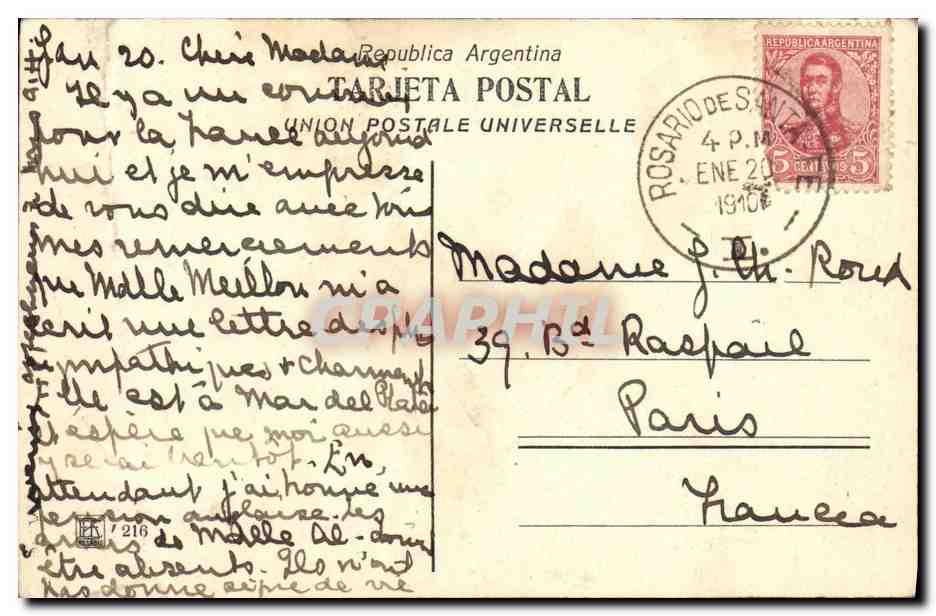 Jan 20. Chère Madame
Il ya un courrier
pour la France aujourd
hui et je m'empresse
de vous dire avec
mes remerciements
que Mdlle Meillon m'a
écrit une lettre des plus
sympathiques & charmante
Elle est à Mar del Plata
et espère que moi aussi
y serai bientôt. En
attendant j'ai une
pension anglaise. Les
amis de Mdlle Al-
être absents. Ils n'ont
pas donné signe de vie
Republica Argentina
TARJETA POSTAL
UNION POSTALE UNIVERSELLE
REPUBLICA ARGENTINA
5 CENTAVOS 5
ROSARIO DE SANTA FE
4 P.M
ENE 20
1910
Madame J. Ch-
39. Bd Raspail
Paris
Francia
216
CRAPHIL